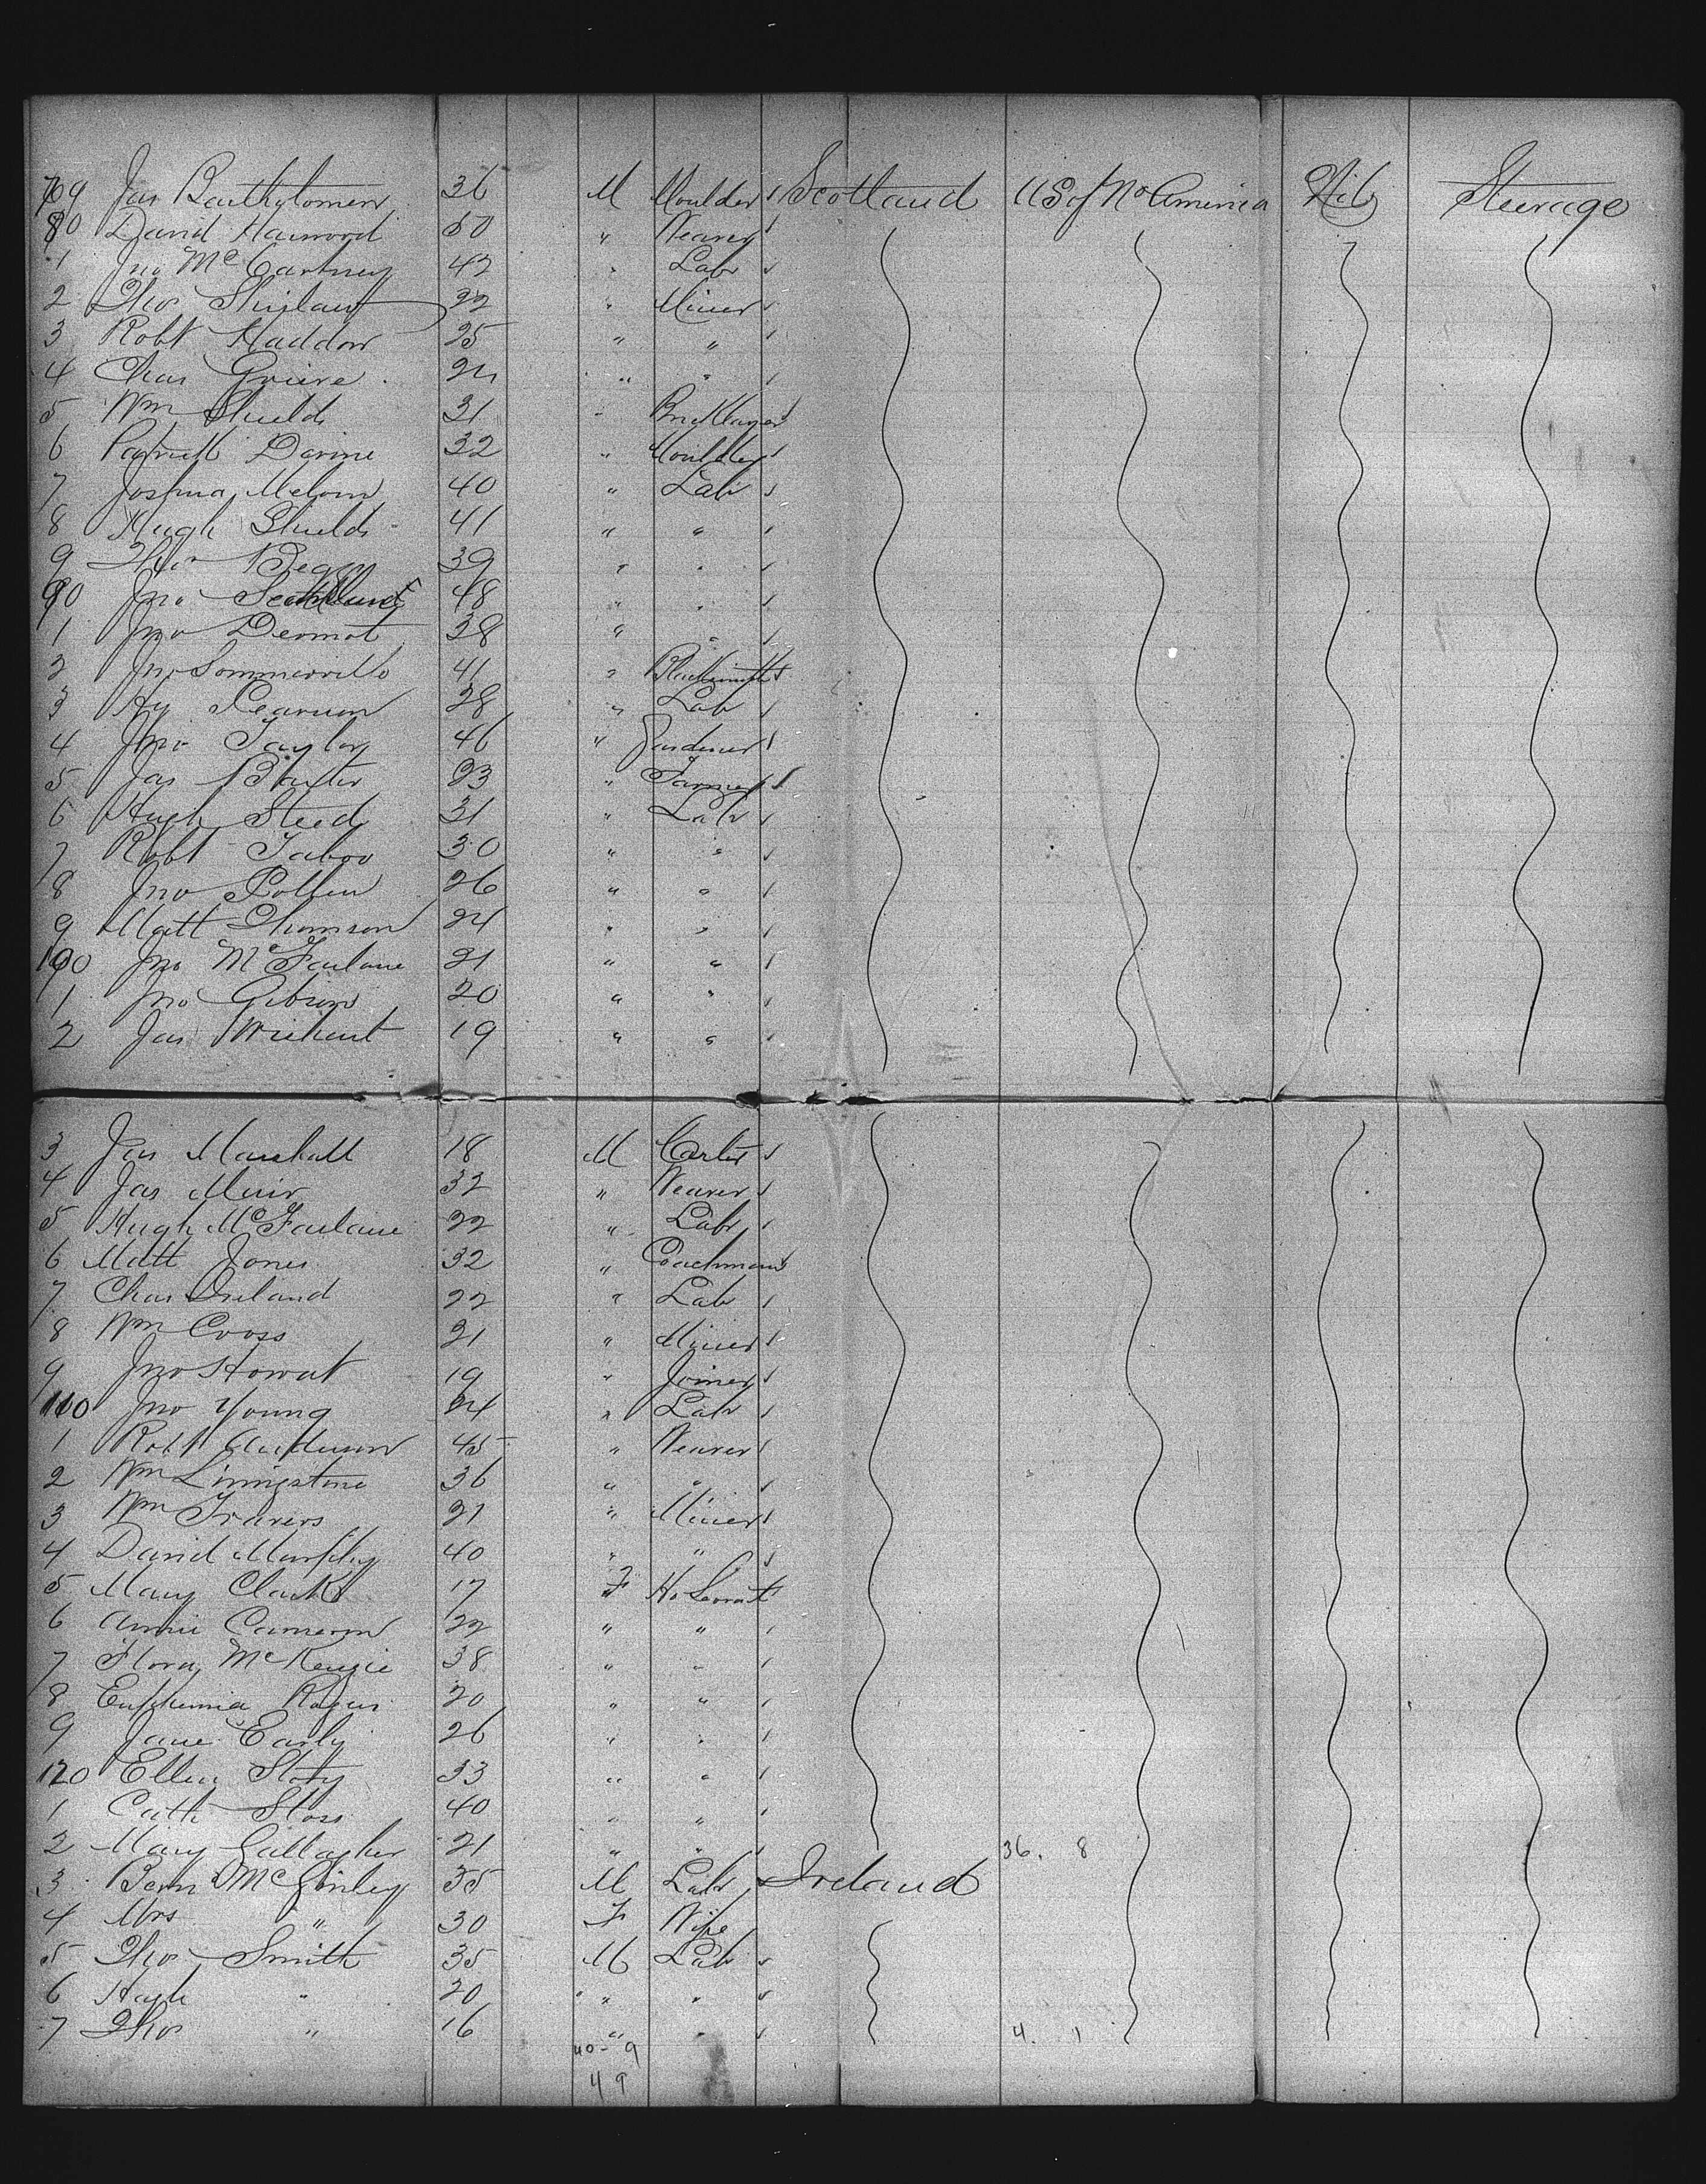 79 Jas Bartholomew 36 M Moulder Scotland U S of No America Nil Steerage
80 David Harwood 50 " Weaver
1 Jno McCartney 42 " Labr
2 Thos Shirlaw 22 " Miner
3 Robt Haddow 25 " "
4 Chas Grieve 24 " "
5 Wm Shields 31 " Bricklayer
6 Patrick Devine 32 " Moulder
7 Joshua 40 " Labr
8 Hugh Shields 41 " "
9 Thos Begg 39 " "
90 Jno 48 " "
1 Jno Dermot 38 " "
2 Jno Sommerville 41 " Blacksmith
3 Hy Pearson 28 " Labr
4 Jno Taylor 46 " Gardener
5 Jas Baxter 23 " Farmer
6 Hugh Steed 31 " Labr
7 Robt Tabor 30 " "
8 Jno 26 " "
9 Matt Thomson 24 " "
100 Jno McFarlane 21 " "
1 Jno Gibson 20 " "
2 Jas Wishart 19 " "
3 Jas Marshall 18 M Carter
4 Jas Muir 32 " Weaver
5 Hugh McFarlane 22 " Labr
6 Matt Jones 32 " Coachman
7 Chas Ireland 22 " Labr
8 Wm Cross 21 " Miner
9 Jno Howat 19 " Joiner
110 Jno Young 24 " Labr
1 Robt Anderson 45 " Weaver
2 Wm Livingstone 36 " "
3 Wm Travers 21 " Miner
4 David Murphy 40 " "
5 Mary Clark 17 F Ho Servant
6 Annie Cameron 22 " "
7 Flora McKenzie 38 " "
8 Euphemia 20 " "
9 Jane Early 26 " "
120 Ellen 33 " "
1 Cath 40 " "
2 Mary Gallagher 21 " " 36. 8
3 Bern McGinley 35 M Labr Ireland
4 Mrs " 30 F Wife
5 Thos Smith 35 M Labr
6 Hugh " 20 " "
7 Thos " 16 " " 4. 1
40 - 9
49